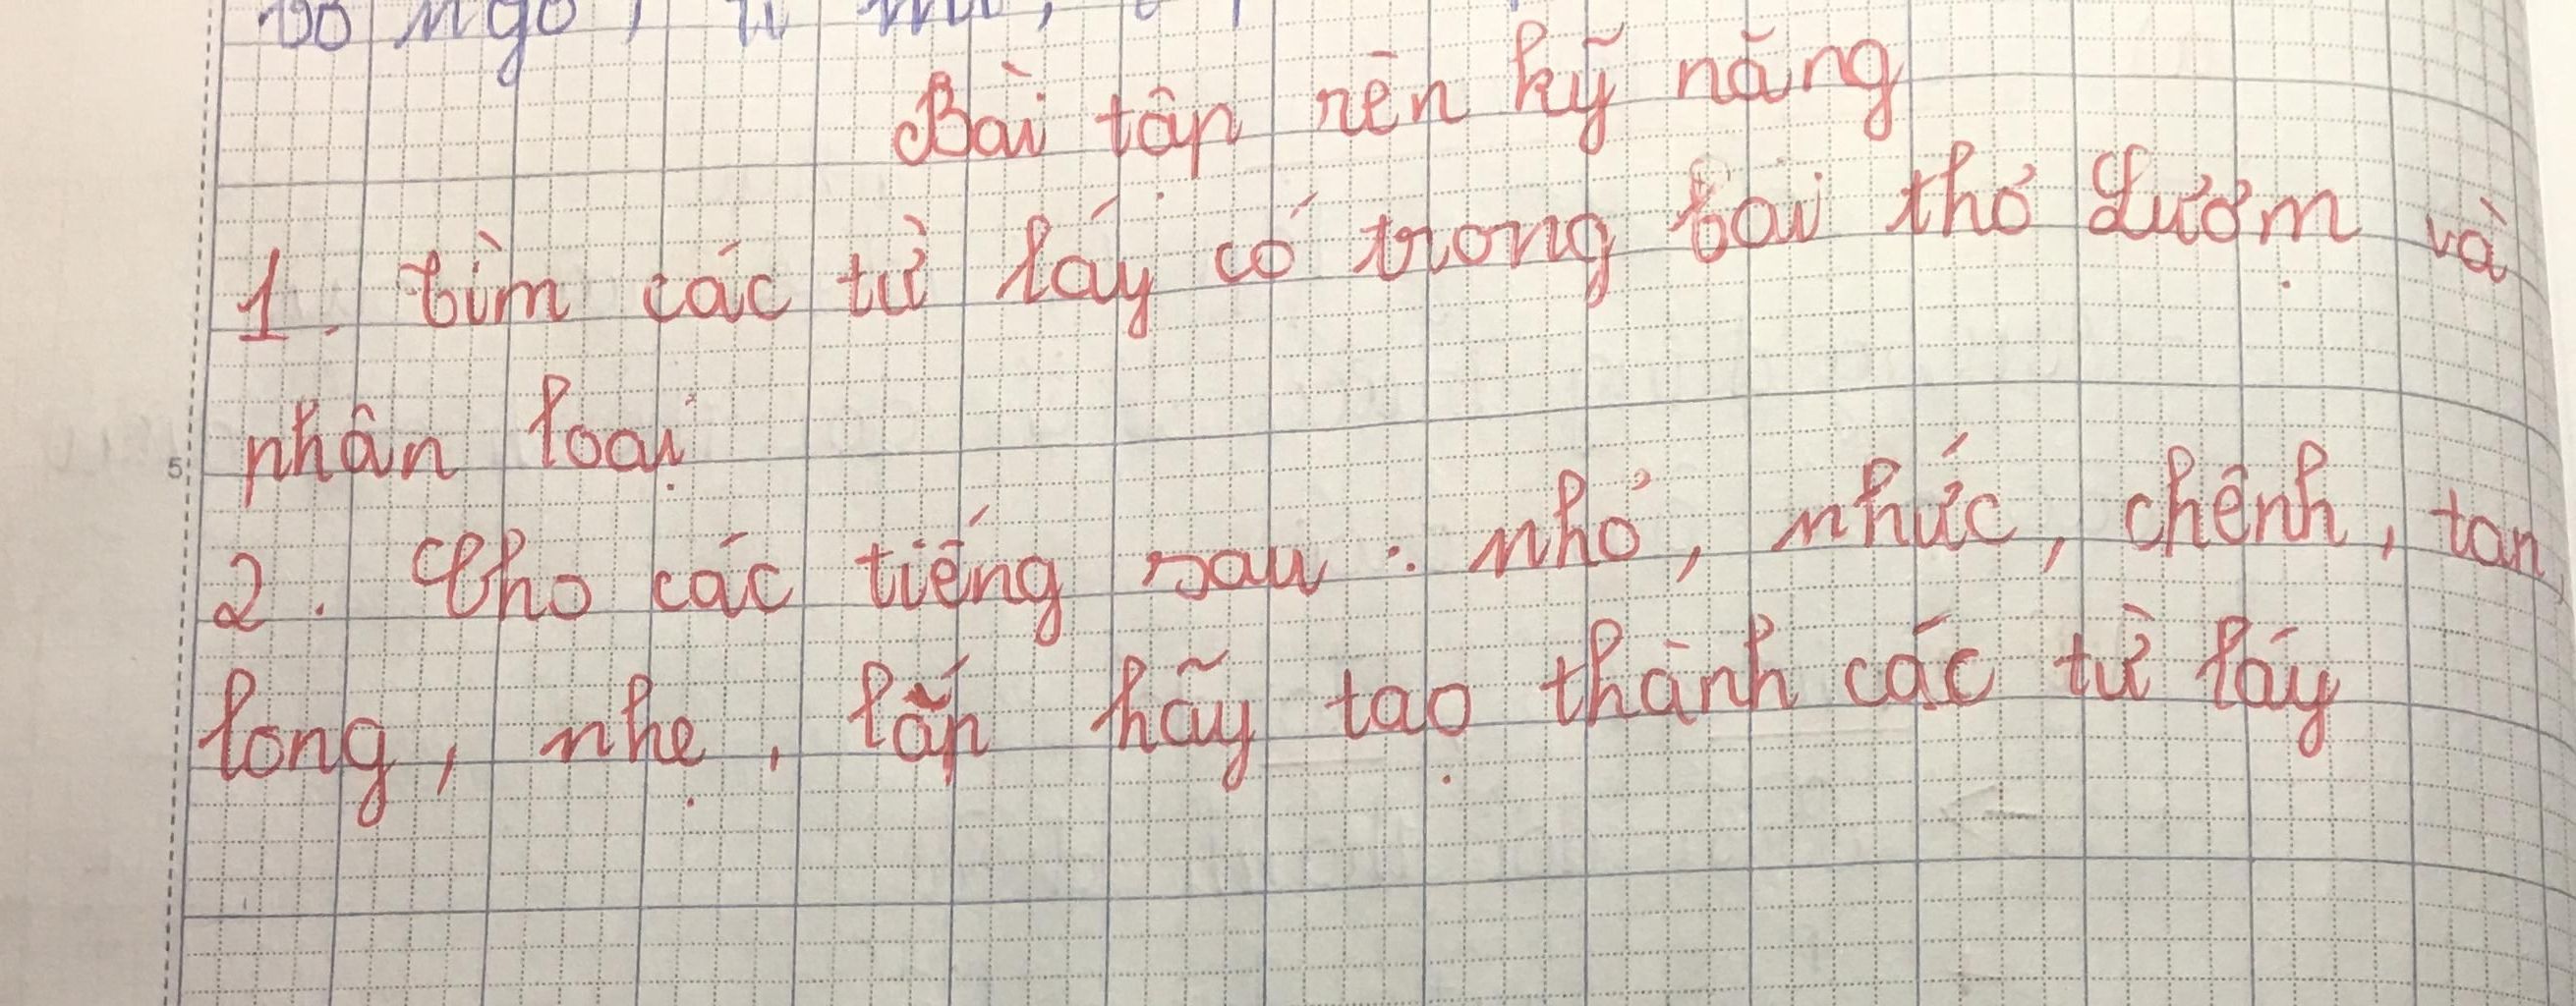 Bài tập rèn kỹ năng
1. Tìm các từ láy có trong bài thơ Lượm và
phân loại
2. Cho các tiếng sau : nhỏ, nhức, chênh, tan,
long, nhẹ, lấp hãy tạo thành các từ láy